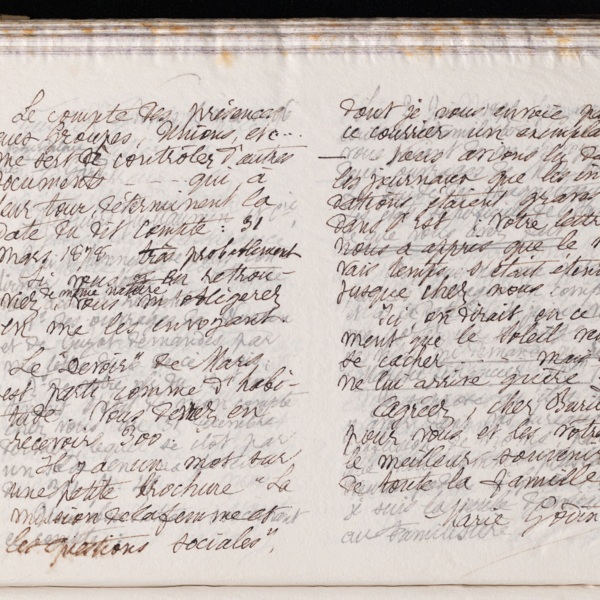 Le compte des présences
aux Groupes, Unions, etc...
me sert de contrôler d'autres
documents - - - - qui, à
leur tour, déterminent la
date du dit compte : 31
mars 1878 très probablement
Si vous en retrou-
de même nature
viez vous m'obligerez
en me les envoyant
Le "Devoir" de Mars
est parti comme d'habi-
tude. Vous devez en
recevoir 300.
Il y a eu un mot sur
une petite brochure "La
mission de la femme et
les questions sociales",
dont je vous envoie
ce courrier un exempla
— Nous avions lu da
les journaux que les in
dations étaient grav
dans l'est. Votre lettre
nous a appris que le
vais temps s'était éten
jusque chez nous
Ici on dirait en ce m
ment que le soleil ve
se cacher mais
ne lui arrive guère
Agréez, cher
pour vous, et les vôtres
le meilleur souvenir
de toute la famille
Marie Godin